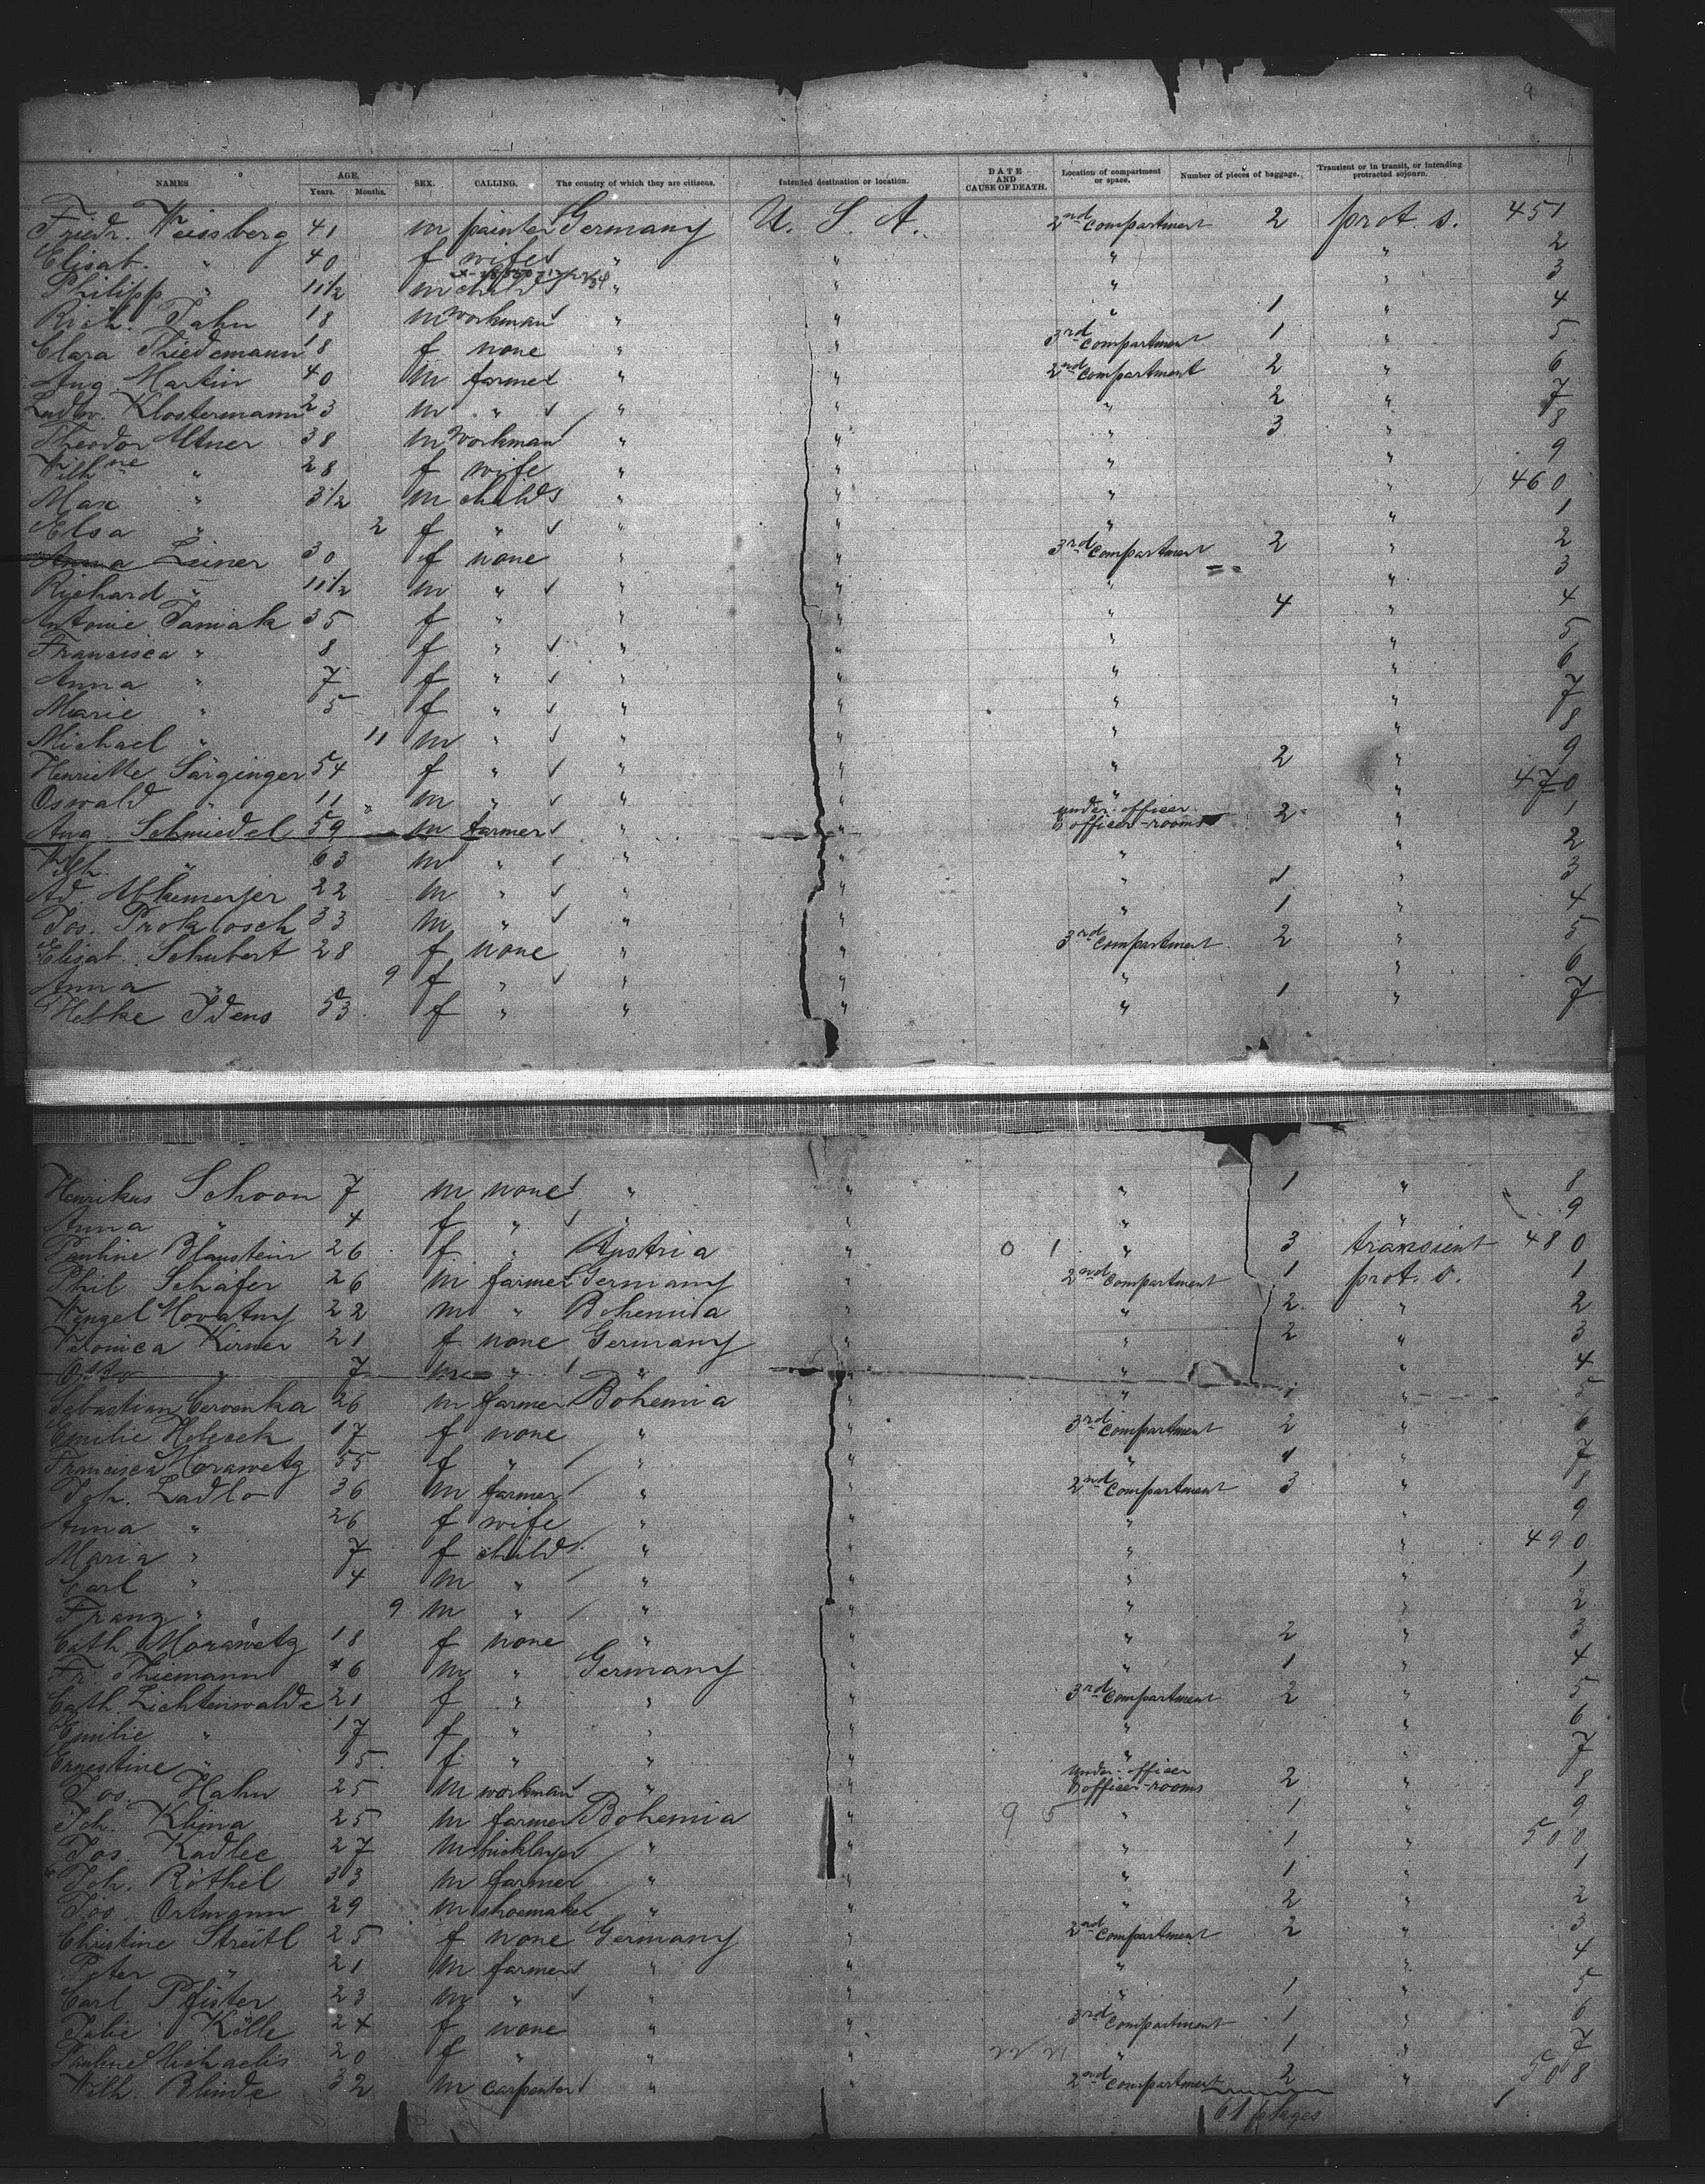 9
NAMES AGE. Years. Months. SEX. CALLING. The country of which they are citizens. Intended destination or location. DATE AND CAUSE OF DEATH. Location of compartment or space. Number of pieces of baggage. Transient or in transit, or intending protracted sojourn.
Friedr. Weissberg 41 m painter Germany U. S. A. 2nd compartment 2 prot. s. 451
Elisab. " 40 f wife " " " " 2
Philipp " 11 1/2 m child " " " " 3
Rich. Jahn 18 m workman " " " 1 " 4
Clara Thiedemann 18 f none " " 3rd compartment 1 " 5
Aug. Martin 40 m farmer " " 2nd compartment 2 " 6
Ludw. Klostermann 23 m " " " " 2 " 7
Theodor Altner 38 m workman " " " 3 " 8
Wilhne " 28 f wife " " " " 9
Max " 3 1/2 m child " " " " 460
Elsa " 2 f " " " " " 1
Anna Leiner 30 f none " " 3rd compartment 2 " 2
Richard " 11 1/2 m " " " " " 3
Antonie Janiak 35 f " " " " 4 " 4
Francisca " 8 f " " " " " 5
Anna " 7 f " " " " " 6
Marie " 5 f " " " " " 7
Michael " 11 m " " " " " 8
Henriette Särginger 54 f " " " " 2 " 9
Oswald " 11 m " " " " " 470
Aug. Schmiedel 59 m farmer " " under-officer & officer-rooms 2 " 1
Wilh. " 63 m " " " " " 2
Ad. 22 m " " " " " 3
Jos. Prokosch 33 m " " " " 1 " 4
Elisab. Schubert 28 f none " " 3rd compartment 2 " 5
Anna " 9 f " " " " " 6
Hebke Idens 53 f " " " " 1 " 7
Henrikus Schoon 7 m none " " " 1 " 8
Anna " 4 f " " " " " 9
Pauline Blaustein 26 f " Austria " 0 1 " 3 transient 480
Phil. Schäfer 26 m farmer Germany " 2nd compartment 1 prot. s. 1
Wenzel Novatny 22 m " Bohemia " " 2 " 2
Veronica Kirner 21 f none Germany " " 2 " 3
Otto " 7 m " " " " " 4
Sebastian Cervenka 26 m farmer Bohemia " " 1 " 5
Emilie 17 f none " " 3rd compartment 2 " 6
Francisca Morawetz 55 f " " " " 1 " 7
Joh. Ladlo 36 m farmer " " 2nd compartment 3 " 8
Anna " 26 f wife " " " " 9
Maria " 7 f child " " " " 490
Carl " 4 m " " " " " 1
Franz " 9 m " " " " " 2
Cath. Morawetz 18 f none " " " 2 " 3
Fr. Thiemann 46 m " Germany " " 1 " 4
Cath. Lichtenwalde 21 f " " " 3rd compartment 2 " 5
Emilie " 17 f " " " " " 6
Ernestine " 15 f " " " " " 7
Jos. Hahn 25 m workman " " under-officer & officer-rooms 2 " 8
Joh. Klima 25 m farmer Bohemia " 9 5 " 1 " 9
Jos. Kadlec 27 m bricklayer " " " 1 " 500
Joh. Röthel 33 m farmer " " " 1 " 1
Jos. Ortmann 29 m shoemaker " " " 2 " 2
Christine Streitl 25 f none Germany " 2nd compartment 2 " 3
Peter " 21 m farmer " " " " 4
Carl Pfister 23 m " " " " 1 " 5
Julie Kölle 24 f none " " 3rd compartment 1 " 6
Pauline Michaelis 20 f " " " " 1 " 7
Wilh. Blinde 32 m carpenter " " 2nd compartment 2 " 508
61